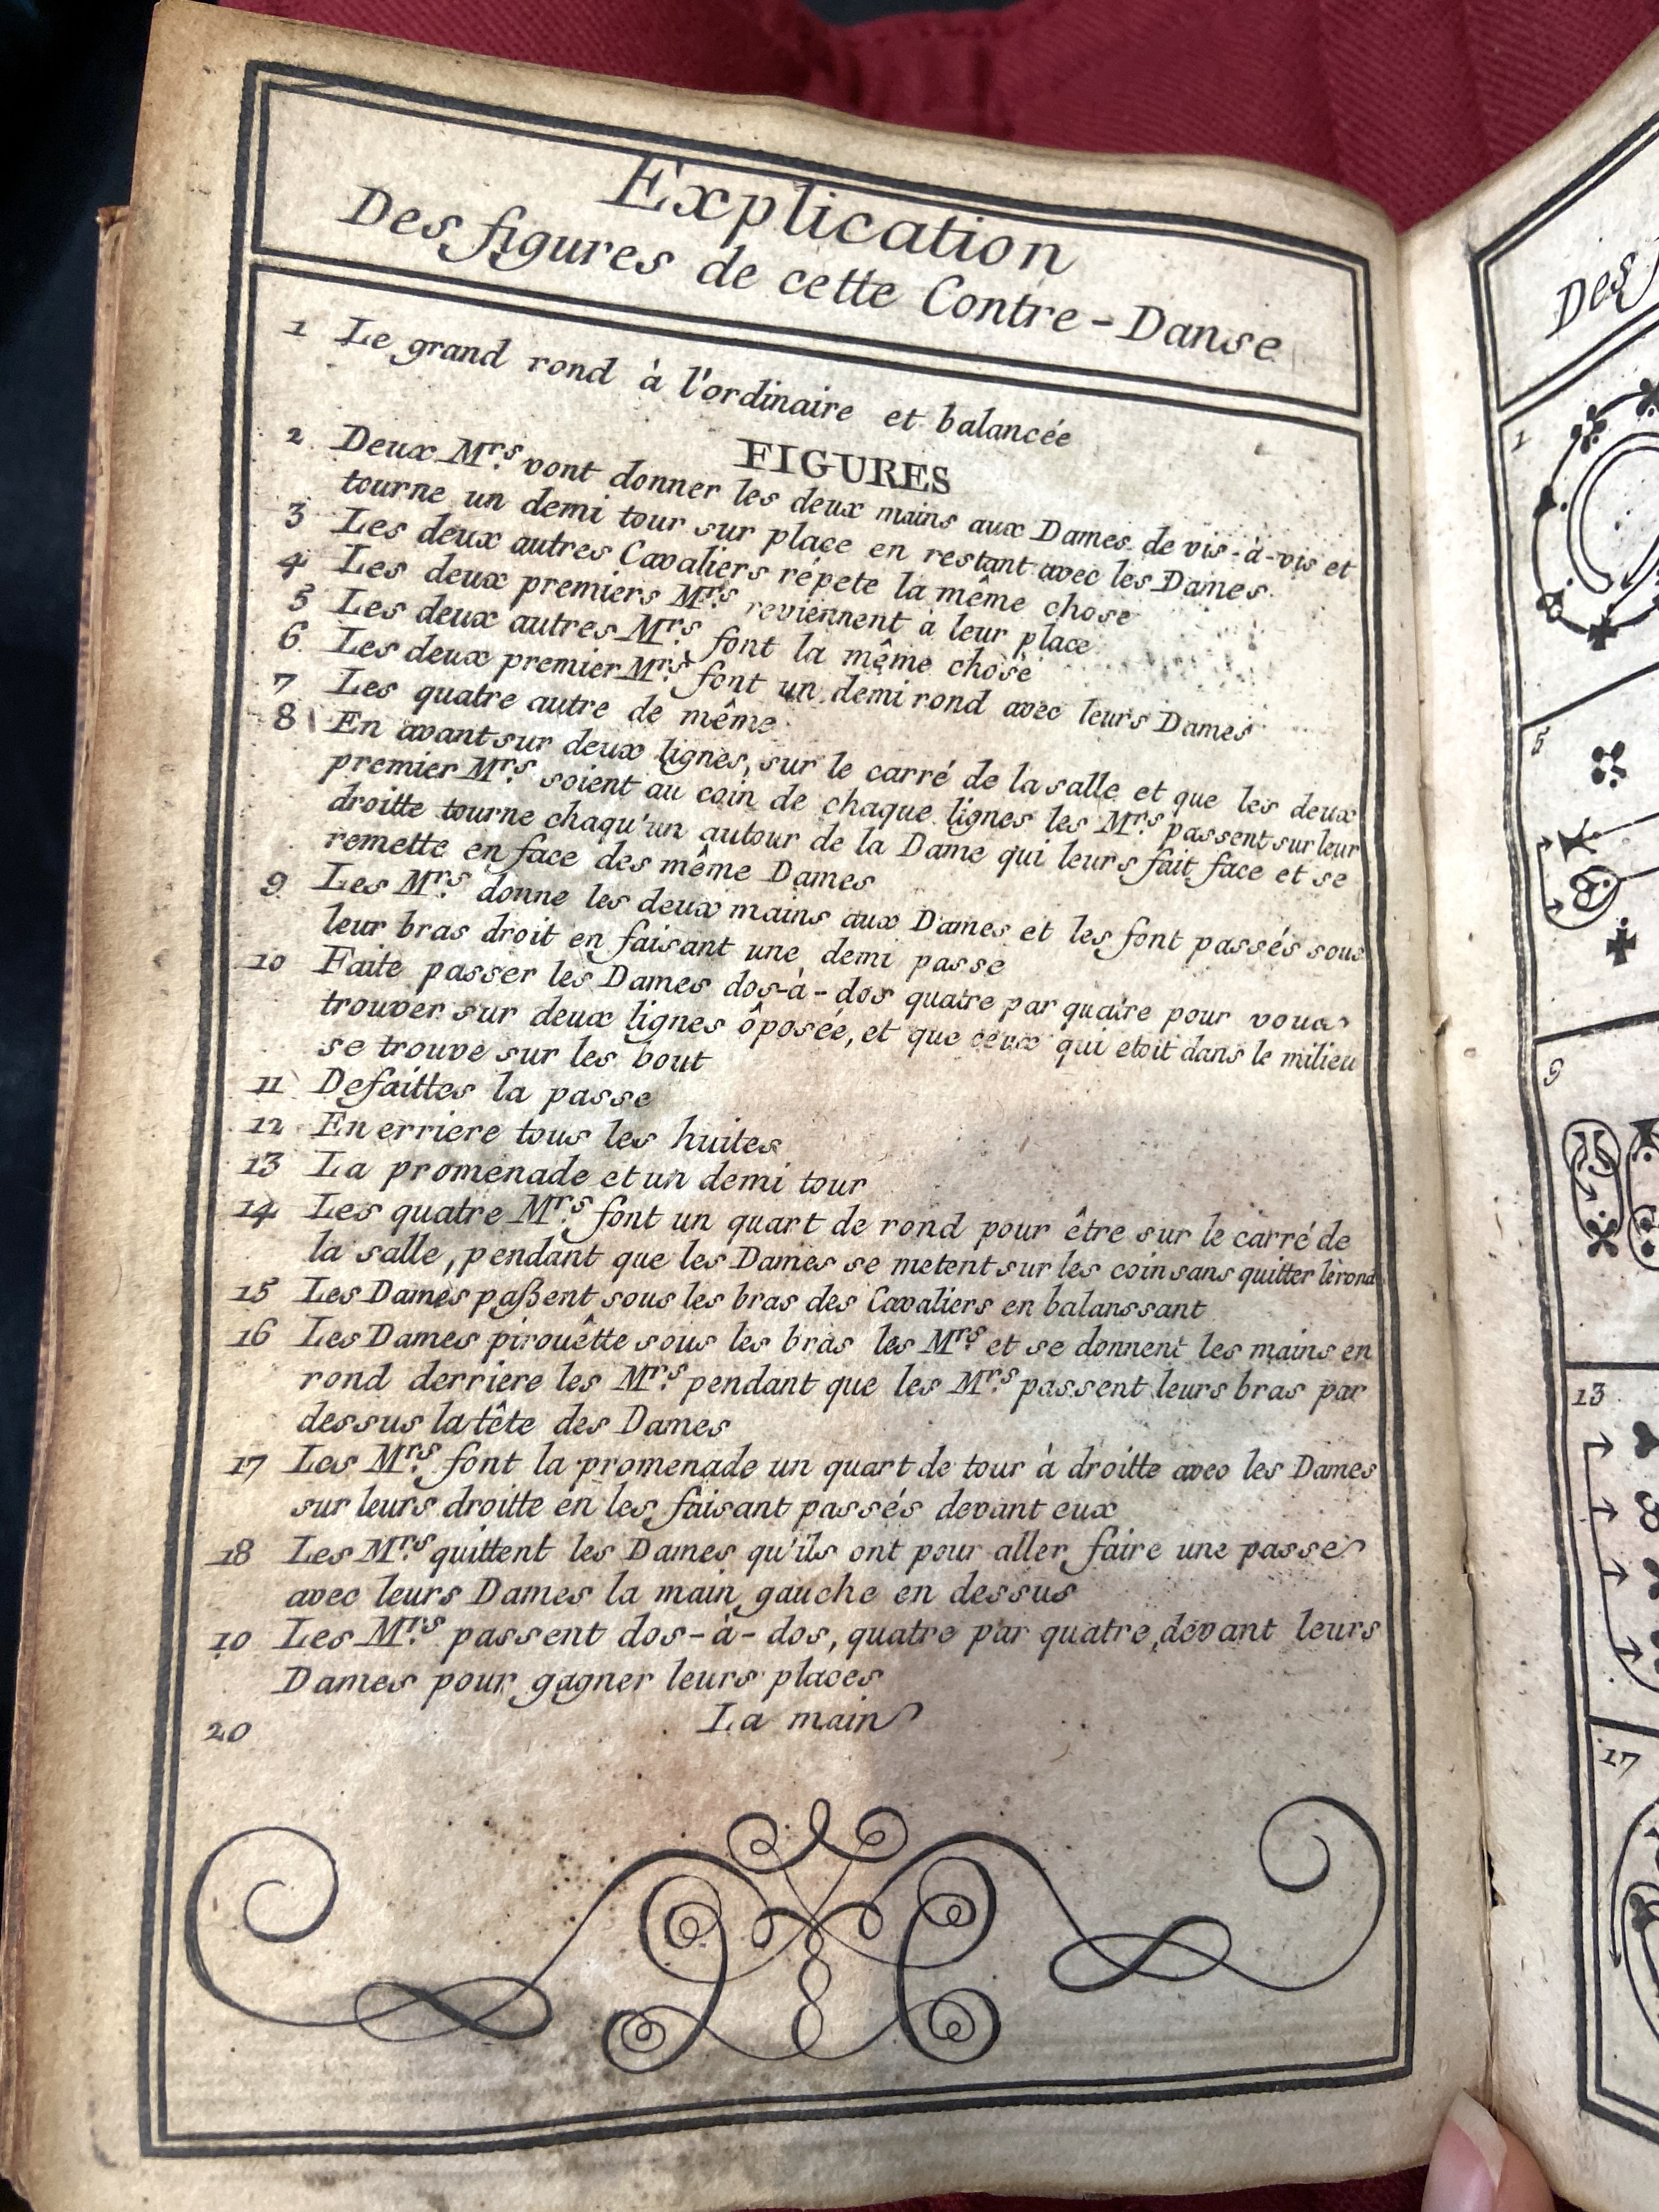 Explication
Des figures de cette Contre-Danse
1 Le grand rond à l'ordinaire et balancée
FIGURES
2 Deux Mrs. vont donner les deux mains aux Dames de vis-à-vis et
tourne un demi tour sur place en restant avec les Dames
3 Les deux autres Cavaliers répete la même chose
4 Les deux premiers Mrs. reviennent à leur place
5 Les deux autres Mrs. font la même chose
6 Les deux premier Mrs. font un demi rond avec leurs Dames
7 Les quatre autre de même
8 En avant sur deux lignes, sur le carré de la salle et que les deux
premier Mrs. soient au coin de chaque lignes les Mrs. passent sur leur
droitte tourne chaqu'un autour de la Dame qui leurs fait face et se
remette en face des même Dames
9 Les Mrs. donne les deux mains aux Dames et les font passés sous
leur bras droit en faisant une demi passe
10 Faite passer les Dames dos-à-dos quatre par quatre pour vous
trouver sur deux lignes ôposée, et que ceux qui etoit dans le milieu
se trouve sur les bout
11 Defaittes la passe
12 En erriere tous les huites
13 La promenade et un demi tour
14 Les quatre Mrs. font un quart de rond pour être sur le carré de
la salle, pendant que les Dames se metent sur les coin sans quitter le rond
15 Les Dames paßent sous les bras des Cavaliers en balanssant
16 Les Dames pirouêtte sous les bras les Mrs. et se donnent les mains en
rond derriere les Mrs. pendant que les Mrs. passent leurs bras par
dessus la tête des Dames
17 Les Mrs. font la promenade un quart de tour à droitte avec les Dames
sur leurs droitte en les faisant passés devant eux
18 Les Mrs. quittent les Dames qu'ils ont pour aller faire une passe
avec leurs Dames la main gauche en dessus
10 Les Mrs. passent dos-à-dos, quatre par quatre, devant leurs
Dames pour gagner leurs places
20 La main
Des f
1
5
9
13
17